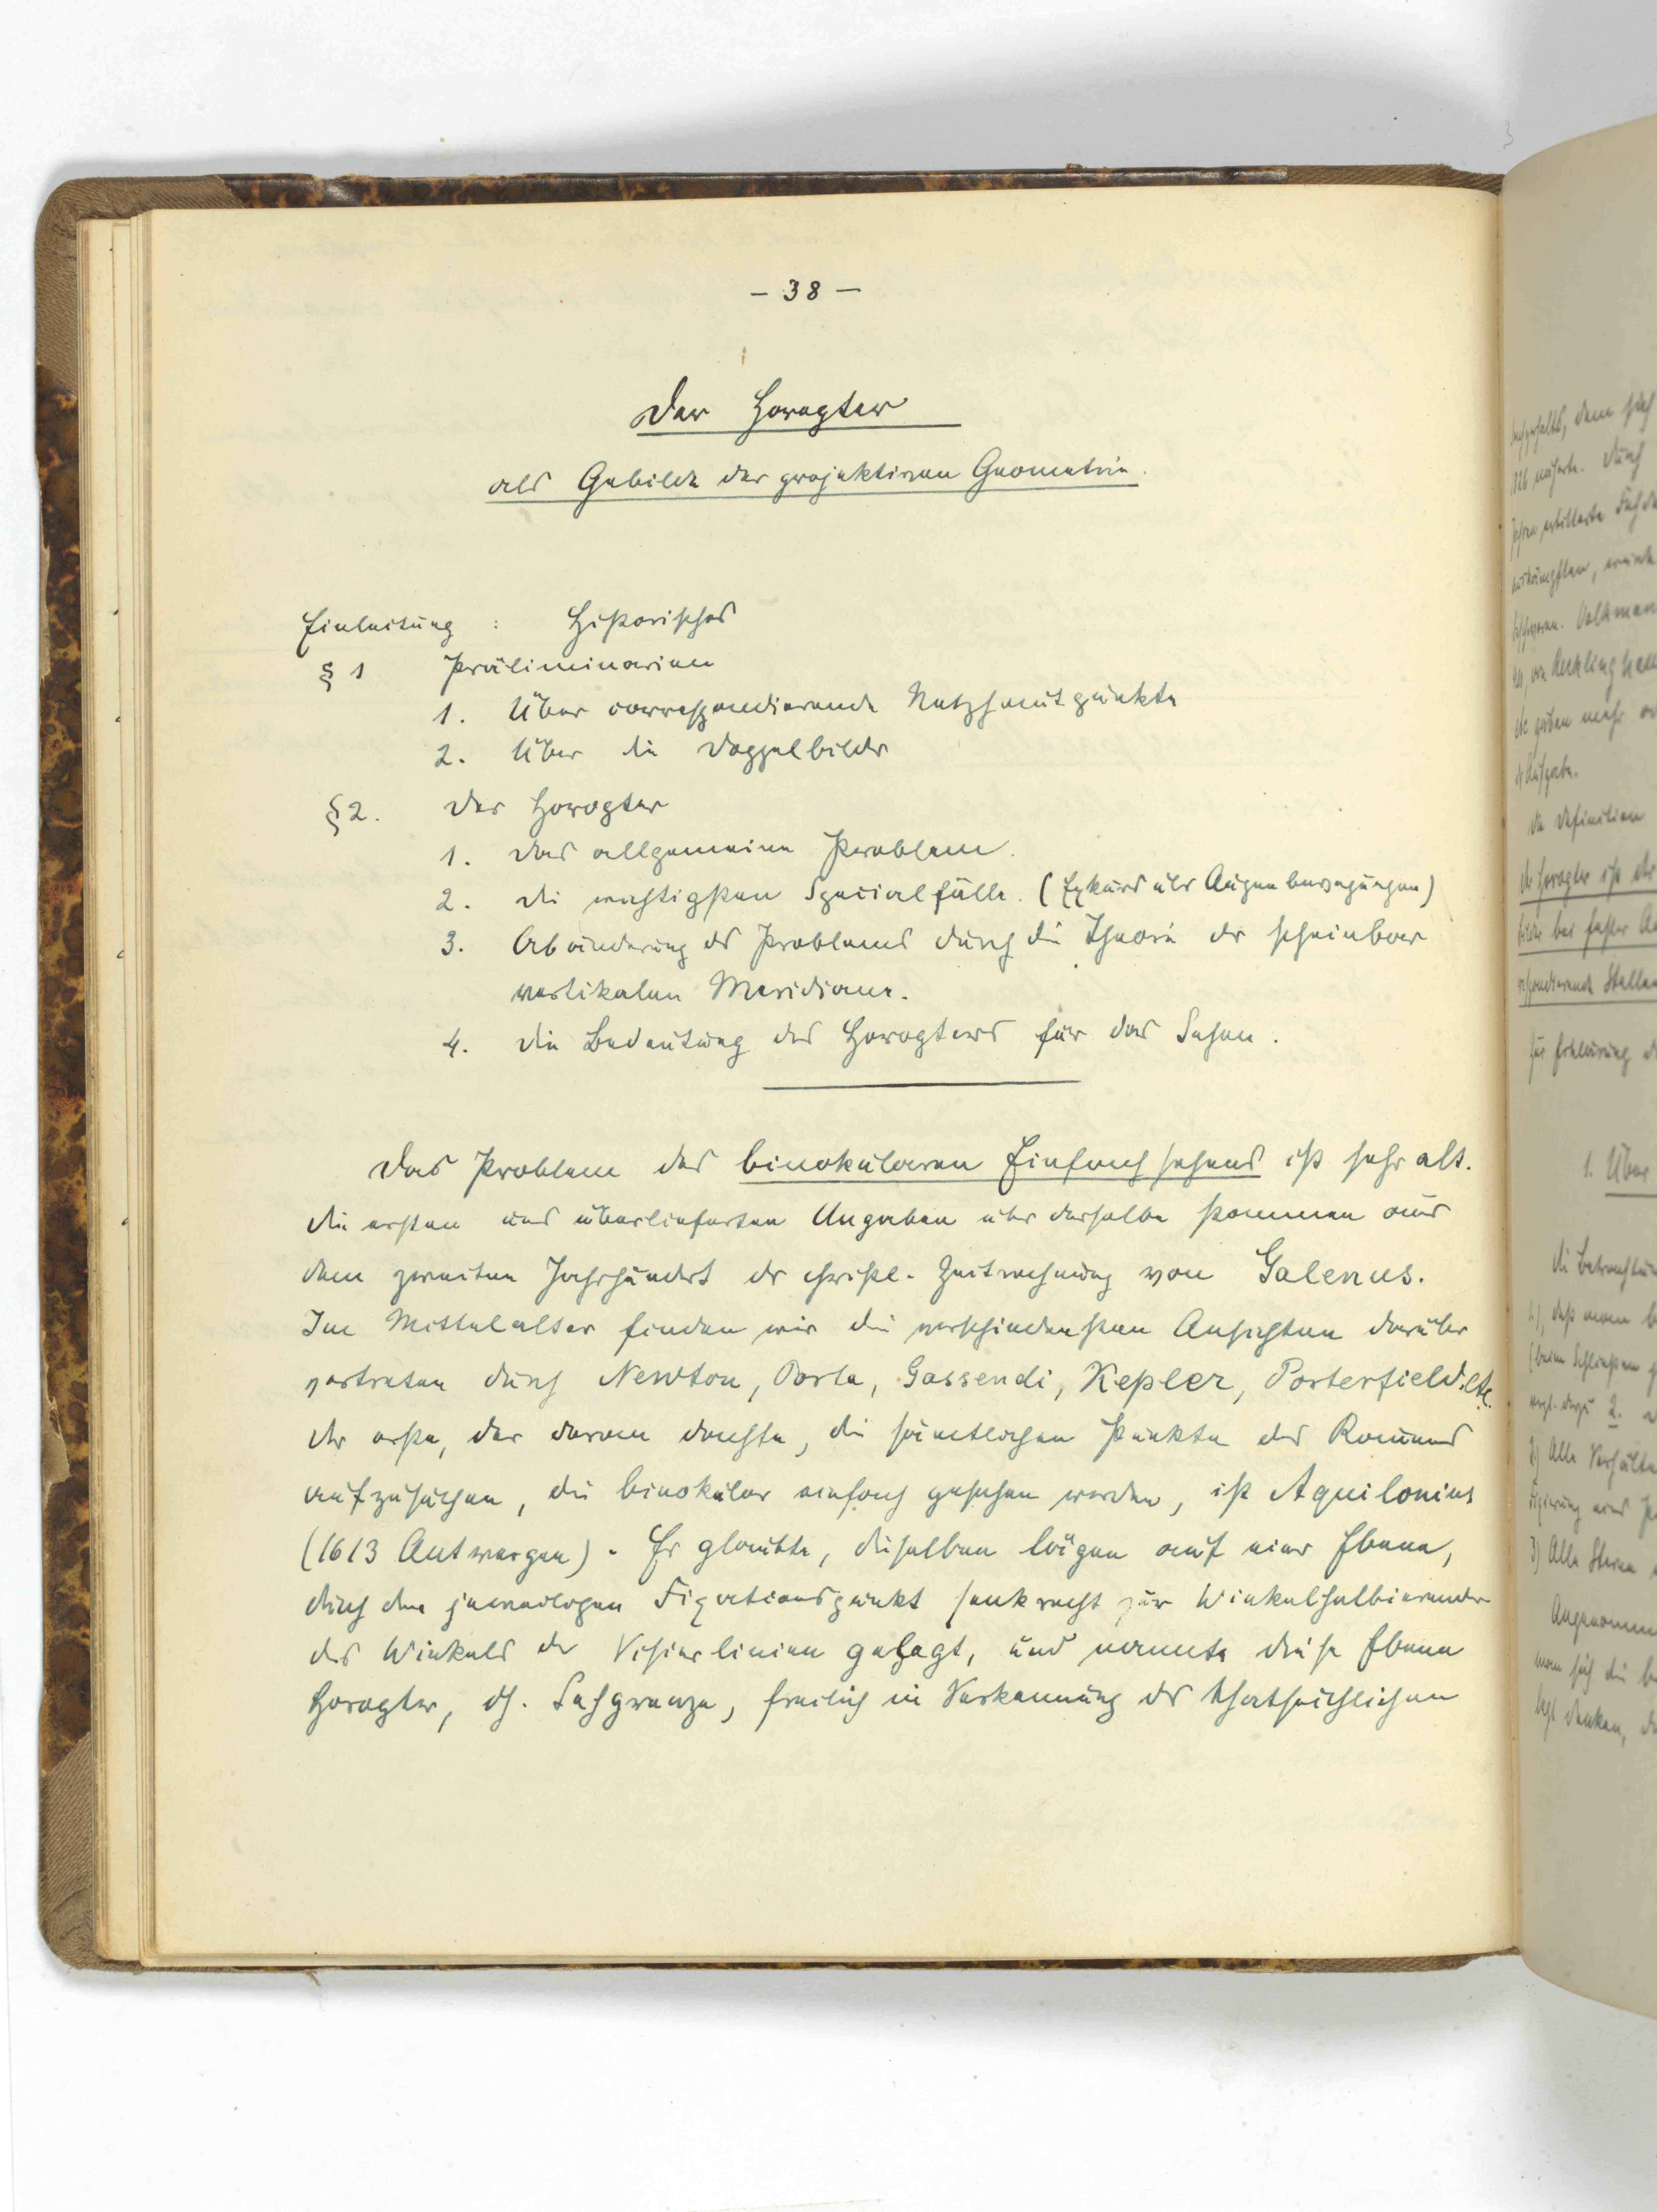 - 38 -
Der Horopter
als Gebilde der projektiven Geometrie.
Einleitung : Historisches
§ 1 Präliminarien
1. Über correspondierende Netzhautpunkte
2. Über die Doppelbilder
§ 2. Der Horopter
1. Das allgemeine Problem.
2. Die wichtigsten Specialfälle. (Exkurs über Augenbewegungen)
3. Abänderung des Problems durch die Theorie der scheinbar
vertikalen Meridiane.
4. Die Bedeutung des Horopters für das Sehen.
Das Problem des binokularen Einfachsehens ist sehr alt.
Die ersten uns überlieferten Angaben über dasselbe stammen aus
dem zweiten Jahrhundert der christl. Zeitrechnung von Galenus.
Im Mittelalter finden wir die verschiedensten Ansichten darüber
vertreten durch Newton, Porta, Gassendi, Kepler, Porterfield etc.
Der erste, der daran dachte, die sämtlichen Punkte des Raumes
aufzusuchen, die binokular einfach gesehen werden, ist Aquilonius
(1613 Antwerpen). Er glaubte, dieselben lägen auf einer Ebene,
durch den jeweiligen Fixationspunkt senkrecht zur Winkelhalbierenden
des Winkels der Visierlinien gelegt, und nannte diese Ebene
Horopter, dh. Sehgrenze, freilich in Verkennung der thatsächlichen
1. Über